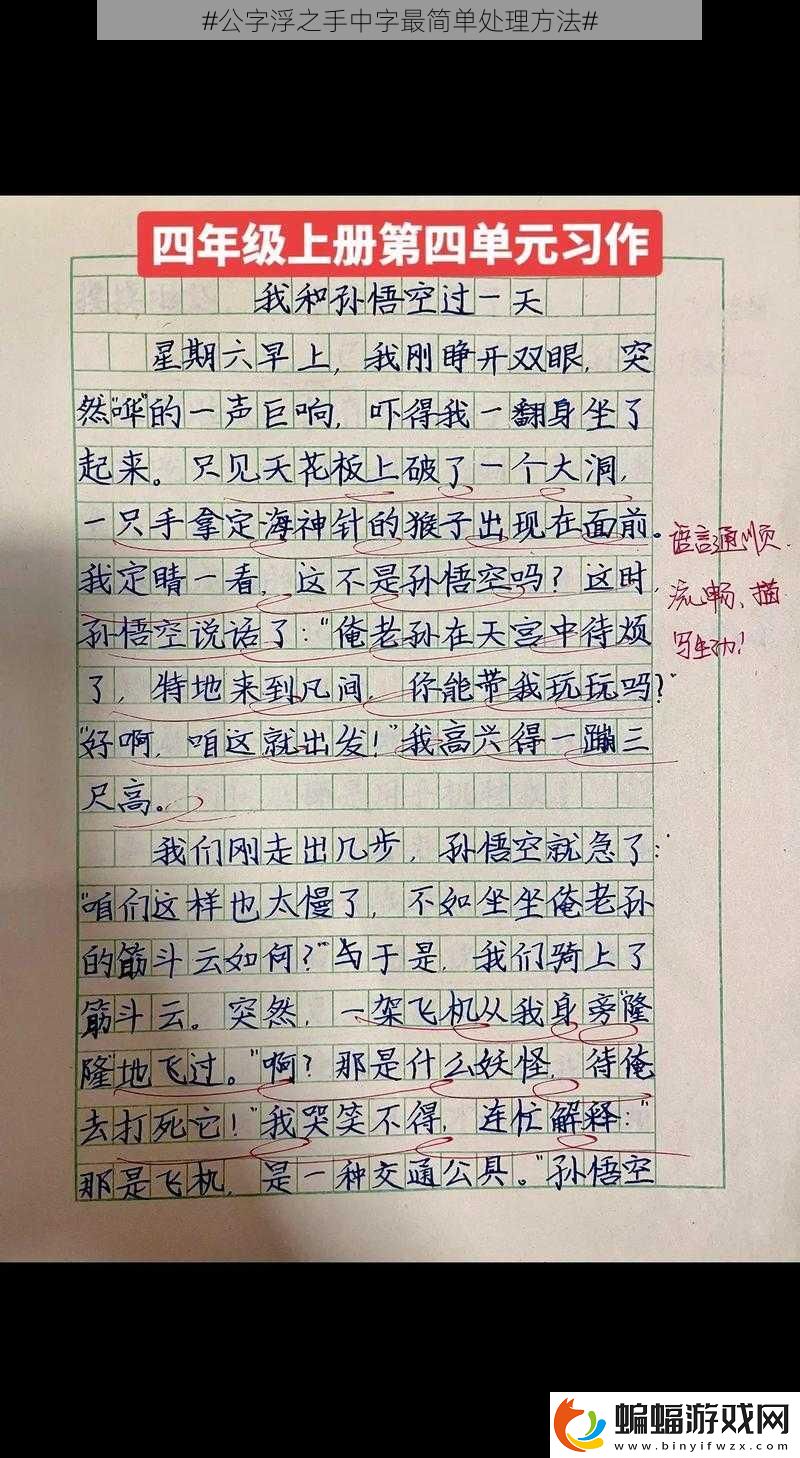 #公字浮之手中字最简单处理方法#
四年级上册第四单元习作
我和孙悟空过一天
星期六早上，我刚睁开双眼，突
然“哗”的一声巨响，吓得我一翻身坐了
起来。只见天花板上破了一个大洞，
一只手拿定海神针的猴子出现在面前。
我定睛一看，这不是孙悟空吗？这时，
孙悟空说话了：“俺老孙在天宫中待烦
了，特地来到凡间，你能带我玩玩吗？”
“好啊，咱这就出发！”我高兴得一蹦三
尺高。
语言通顺.
流畅、描
写生动！
我们刚走出几步，孙悟空就急了：
“咱们这样也太慢了，不如坐坐俺老孙
的筋斗云如何？”与于是，我们骑上了
筋斗云。突然，一架飞机从我身旁“隆
隆”地飞过。“啊？那是什么妖怪，待俺
去打死它！”我哭笑不得，连忙解释：“
那是飞机，是一种交通公具。”孙悟空
蝙蝠游戏网
www.binyifwzx.com